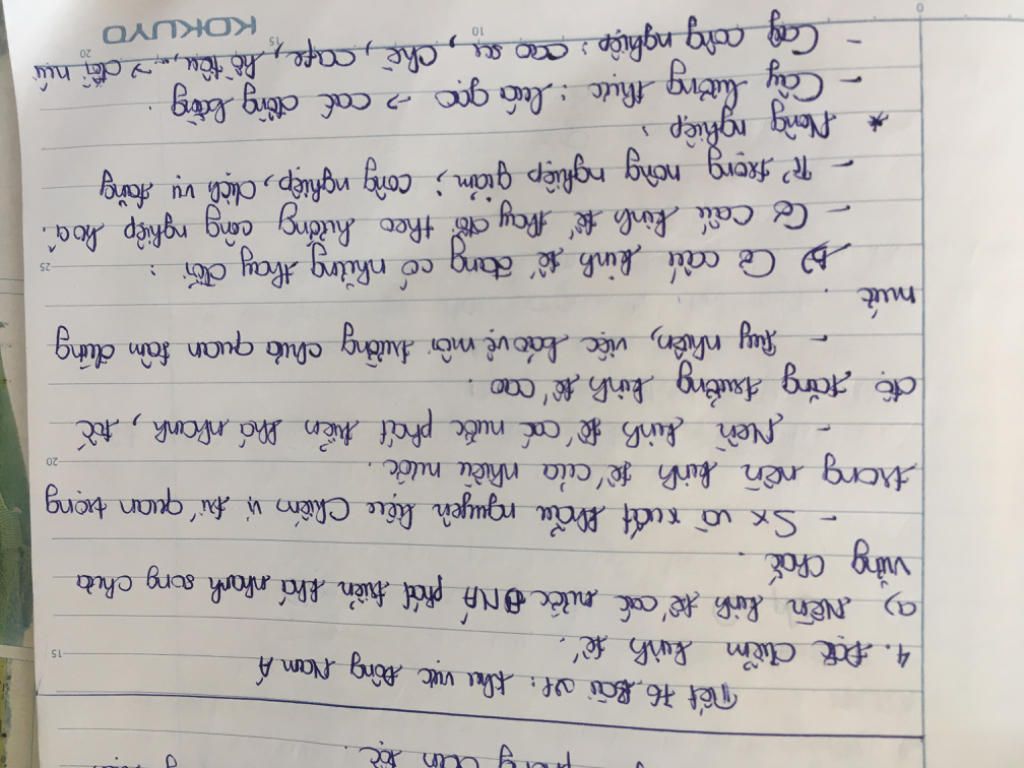 phong dân tộc.
Tiết 16. Bài 11: Khu vực Đông Nam Á
4. Đặc điểm kinh tế.
a) Nền kinh tế các nước ĐNA phát triển khá nhanh song chưa
vững chắc.
- Sx và xuất khẩu nguyên liệu chiếm vị trí quan trọng
trong nền kinh tế của nhiều nước.
- Nền kinh tế các nước phát triển khá nhanh, tốc
độ tăng trưởng kinh tế cao.
- Tuy nhiên, việc bảo vệ môi trường chưa quan tâm đúng
mức.
b) Cơ cấu kinh tế đang có những thay đổi:
- Cơ cấu kinh tế thay đổi theo hướng công nghiệp hoá.
- Tỉ trọng nông nghiệp giảm; công nghiệp, dịch vụ tăng
* Nông nghiệp:
- Cây lương thực: lúa gạo -> các đồng bằng
- Cây công nghiệp: cao su, chè, cafe, hồ tiêu,... -> đồi núi
KOKUYO
0
10
15
20
15
20
25